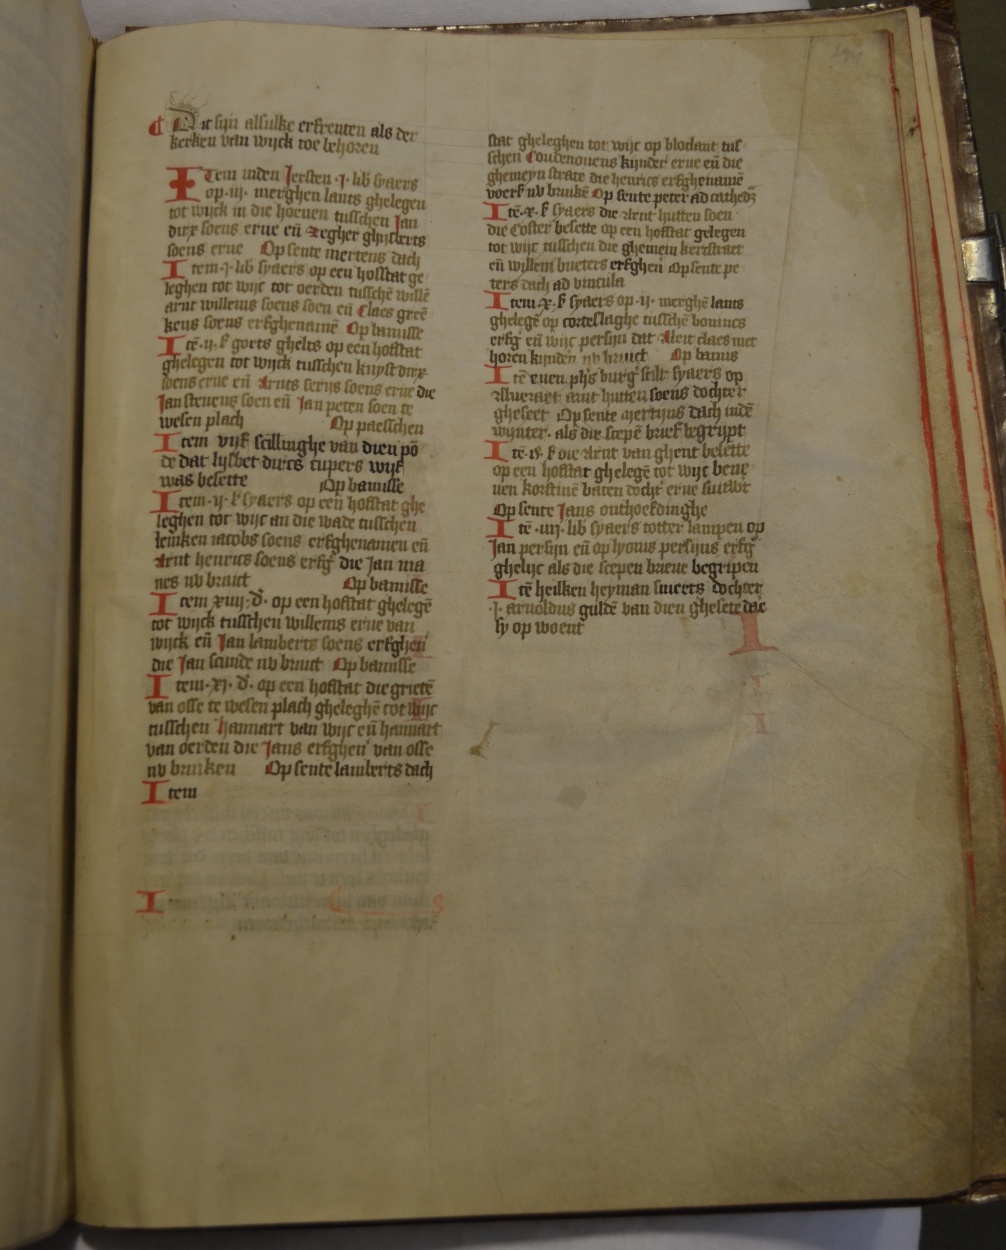 Dit sijn alsulke erfrenten als der
kerken van wijck toe behoren
Item inden Iersten .j. lib syaers
op .iij. merghen lants ghelegen
tot wijck in die hoeuen tusschen Jan
dirx soens erue eñ zegher ghijsberts
soens erue Op sente mertens dach
Item .j. lib syaers op een hofstat ge
leghen tot wijc tot oerden tusschē willē
arnt willems soens soen eñ Claes greē
kens soens erfghenamē Op bamisse
Itē .ij. ꝭ gorts ghelts op een hofstat
ghelegen tot wijck tusschen kuyst dirx
soens erue eñ Arnts serijs soens erue die
Jan steuens soen eñ Jan peters soen te
wesen plach Op paesschen
Item vijꝭ scillinghe van dien pō
de dat lijsbet dircs cupers wijf
was besette Op bamisse
Item .ij. ꝭ syaers op een hofstat ghe
leghen tot wijc an die wade tusschen
lemken iacobs soens erfghenamen eñ
Arnt henrics soens erfg' die Jan ma
nes nv bruict Op bamisse
Item xiiij. d'. op een hofstat ghelegē
tot wijck tusschen willems erue van
wijck eñ Jan lamberts soens erfghen'
die Jan scinde nv bruict Op bamisse
Item .xj. d'. op een hofstat die grietē
van osse te wesen plach gheleghē tot wijc
tusschen hannart van wijc eñ hannart
van oerden die Jans erfghen' van osse
nv bruiken Op sente lamberts dach
Item
stat gheleghen tot wijc op blochant tus
schen Coudenouens kijnder erue eñ die
ghemeyn strate die henrics erfghenamē
voers nv bruikē Op sente peter ad cathedr'
Itē .x. ꝭ syaers die Arnt hutten soen
die Coster besette op een hofstat gelegen
tot wijc tusschen die ghemein kercstraet
eñ willem bueters erfghen Op sente pe
ters dach ad vincula
Item .x. ꝭ syaers op .ij. merghē lants
ghelegē op corteslaghe tusschē bonincs
erfg' eñ wijc persijn dat Aleit claes met
horen kijnden nv bruict Op bamis
Itē euen phs burg' scilt syaers op
arnt hutten soens dochter
gheseet Op sente mertijns dach indē
wijnter. als die scepē brief begrijpt
Itē .ix. ꝭ die Arnt van ghent besette
op een hofstat ghelegē tot wijc bene
uen korstinē baten docht' erue
Op sente Jans onthoefdinghe
Itē .iiij. lib syaers totter lampen op
Jan persijn eñ op lyonis persijns erfg'
ghelijc als die scepen brieue begripen
Itē heilken heyman sweers dochter
.j. arnoldus guldē van dien ghesete dae
sy op woent